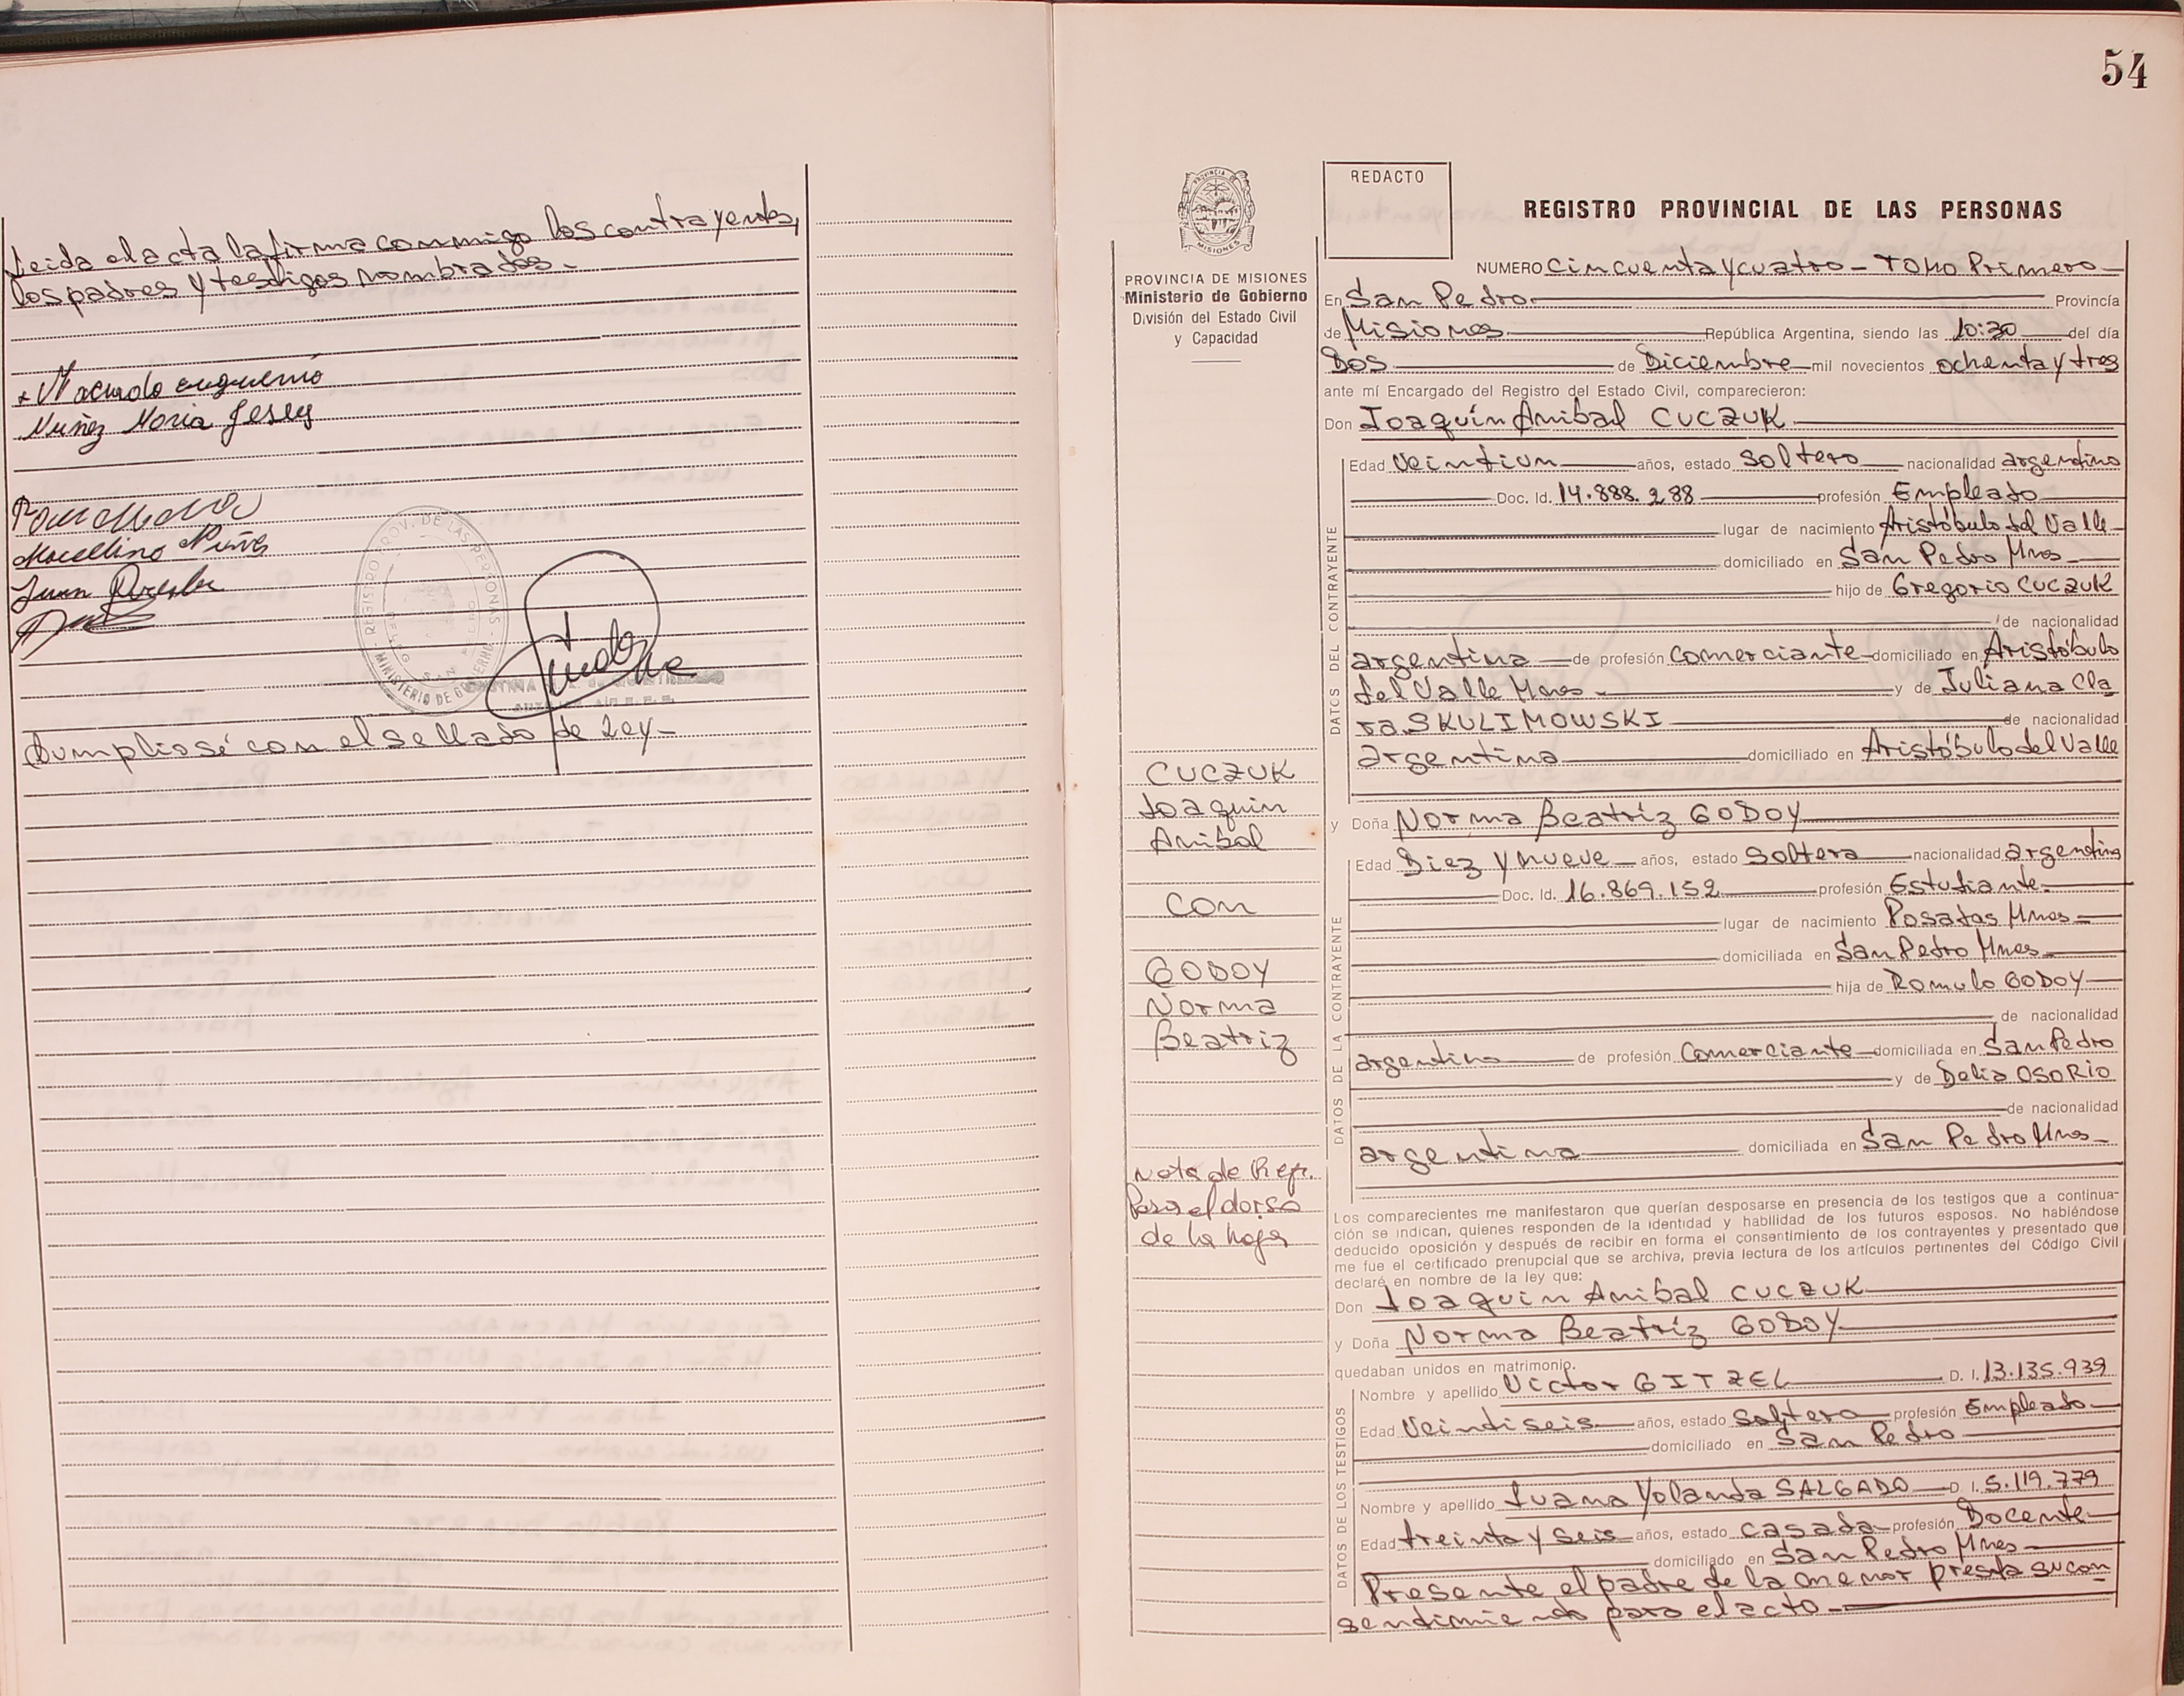 Leida el acta la firma conmigo los contrayentes,
los padres y testigos nombrados.-
+ Machado eugenio
Nuñez Maria Jesus
Marcellino Nuñes
Juan
REGISTRO PROV. DE LAS PERSONAS - MINISTERIO DE GOBIERNO
Cumpliose con el sellado de Ley-
54
PROVINCIA DE
MISIONES
PROVINCIA DE MISIONES
Ministerio de Gobierno
División del Estado Civil
y Capacidad
CUCZUK
Joaquin
Anibal
con
GODOY
Norma
Beatriz
Nota de Ref.
Pasa el dorso
de la hoja
REDACTO
REGISTRO PROVINCIAL DE LAS PERSONAS
NUMERO Cincuenta y cuatro - TOMO Primero
En San Pedro Provincia
de Misiones República Argentina, siendo las 10:30 del día
Dos de Diciembre mil novecientos ochenta y tres
ante mí Encargado del Registro del Estado Civil, comparecieron:
Don Joaquín Anibal CUCZUK
DATOS DEL CONTRAYENTE
Edad Veintiun años, estado soltero nacionalidad argentino
Doc. Id. 14.888.288 profesión Empleado
lugar de nacimiento Aristóbulo del Valle
domiciliado en San Pedro Mnes
hijo de Gregorio CUCZUK
de nacionalidad
argentina de profesión Comerciante domiciliado en Aristóbulo
del Valle Mnes - y de Juliana Cla
ra SKULIMOWSKI de nacionalidad
argentina domiciliado en Aristóbulo del Valle
y Doña Norma Beatriz GODOY
DATOS DE LA CONTRAYENTE
Edad Diez y nueve años, estado soltera nacionalidad argentina
Doc. Id. 16.869.152 profesión Estudiante
lugar de nacimiento Posadas Mnes
domiciliada en San Pedro Mnes
hija de Romulo GODOY
de nacionalidad
argentino de profesión Comerciante domiciliada en San Pedro
y de Delia OSORIO
de nacionalidad
argentina domiciliada en San Pedro Mnes
Los comparecientes me manifestaron que querían desposarse en presencia de los testigos que a continua-
ción se indican, quienes responden de la identidad y habilidad de los futuros esposos. No habiéndose
deducido oposición y después de recibir en forma el consentimiento de los contrayentes y presentado que
me fue el certificado prenupcial que se archiva, previa lectura de los artículos pertinentes del Código Civil
declaré en nombre de la ley que:
Don Joaquin Anibal CUCZUK
y Doña Norma Beatriz GODOY
quedaban unidos en matrimonio.
DATOS DE LOS TESTIGOS
Nombre y apellido Victor GITZEL D. I. 13.135.939
Edad Veintiseis años, estado soltero profesión Empleado
domiciliado en San Pedro
Nombre y apellido Juana Yolanda SALGADO D. I. 5.119.779
Edad treinta y seis años, estado casada profesión Docente
domiciliado en San Pedro Mnes
Presente el padre de la menor presta su con
sentimiento para el acto